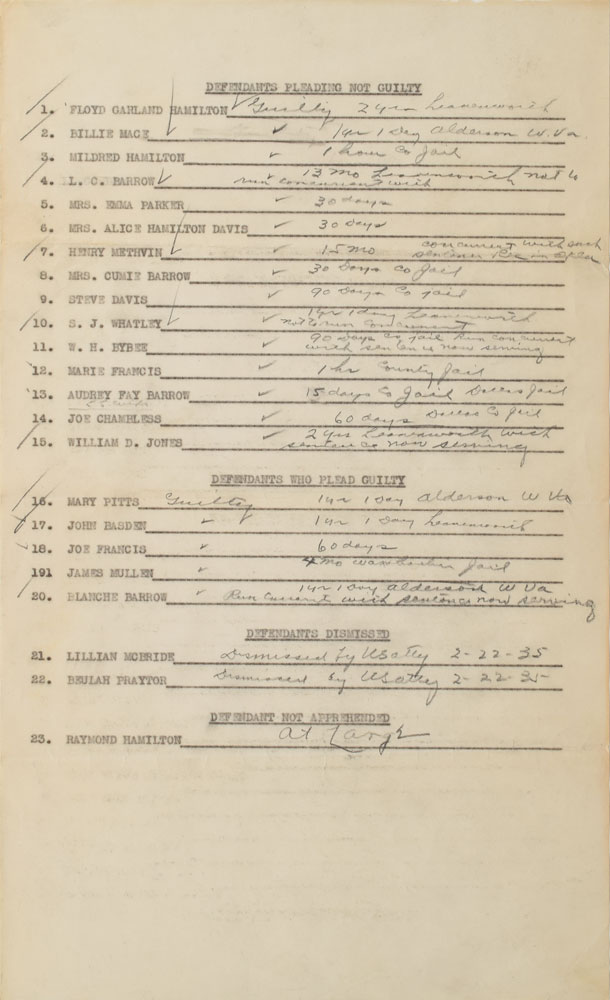 DEFENDANTS PLEADING NOT GUILTY
1. FLOYD GARLAND HAMILTON Guilty 2 yrs Leavenworth
2. BILLIE MACE 1 yr 1 Day Alderson W. Va.
3. MILDRED HAMILTON 1 hour Co Jail
4. L. C. BARROW 13 mo Leavenworth not to
run concurrent with
5. MRS. EMMA PARKER 30 days
6. MRS. ALICE HAMILTON DAVIS 30 days
7. HENRY METHVIN 15 mo concurrent with such
sentence in Okla
8. MRS. CUMIE BARROW 30 Days Co Jail
9. STEVE DAVIS 90 Days Co jail
10. S. J. WHATLEY 1 yr 1 day Leavenworth
not to run concurrent
11. W. H. BYBEE 90 Days Co jail Run concurrent
with sentence now serving
12. MARIE FRANCIS 1 hr County Jail
13. AUDREY FAY BARROW 15 days Co Jail Dallas Jail
14. JOE CHAMBLESS 60 days Dallas Co Jail
15. WILLIAM D. JONES 2 yrs Leavenworth with
sentence now serving
DEFENDANTS WHO PLEAD GUILTY
16. MARY PITTS Guilty 1 yr 1 Day Alderson W Va
17. JOHN BASDEN 1 yr 1 Day Leavenworth
18. JOE FRANCIS 60 days
191 JAMES MULLEN 4 mo jail
20. BLANCHE BARROW 1 yr 1 Day Alderson W Va
Run current with sentence now serving
DEFENDANTS DISMISSED
21. LILLIAN MCBRIDE Dismissed by US atty 2-22-35
22. BEULAH PRAYTOR Dismissed by US atty 2-22-35
DEFENDANT NOT APPREHENDED
23. RAYMOND HAMILTON At Large